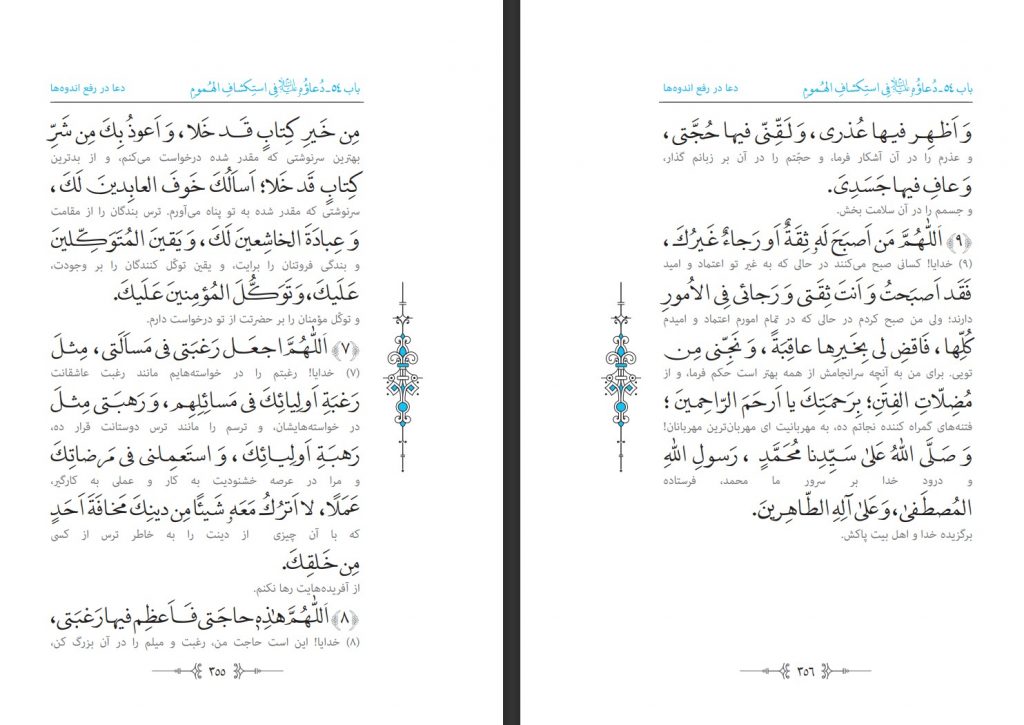 باب ٥٤ - دُعاؤُهُ ﷺ فِی استِکشافِ الهُمومِ
دعا در رفع اندوه‌ها
مِن خَیرِ کِتابٍ قَـد خَلا، وَ اَعوذُ بِكَ مِن شَرِّ
بهترین سرنوشتی که مقدر شده درخواست می‌کنم، و از بدترین
کِتابٍ قَد خَلا؛ اَساَلُكَ خَوفَ العابِدینَ لَكَ،
سرنوشتی که مقدر شده به تو پناه می‌آورم. ترس بندگان را از مقامت
وَ عِبادَةَ الخاشِعینَ لَكَ، وَ یَقینَ المُتَوَکِّلینَ
و بندگی فروتنان را برایت، و یقین توکّل کنندگان را بر وجودت،
عَلَیكَ، وَ تَوَکُّلَ المُؤمِنینَ عَلَیكَ.
و توکّل مؤمنان را بر حضرتت از تو درخواست دارم.
﴿٧﴾ اَللّٰهُمَّ اجعَل رَغبَتی فی مَسأَلَتی، مِثلَ
(٧) خدایا! رغبتم را در خواسته‌هایم مانند رغبت عاشقانت
رَغبَةِ اَولِیائِكَ فی مَسائِلِهِم، وَ رَهبَتی مِثلَ
در خواسته‌هایشان، و ترسم را مانند ترس دوستانت قرار ده،
رَهبَةِ اَولِیائِكَ، وَ استَعمِلنی فی مَرضاتِكَ
و مرا در عرصه خشنودیت به کار و عملی به کارگیر،
عَمَلًا، لا اَترُكُ مَعَهُ شَیئًا مِن دینِكَ مَخافَةَ اَحَدٍ
که با آن چیزی از دینت را به خاطر ترس از کسی
مِن خَلقِكَ.
از آفریده‌هایت رها نکنم.
﴿٨﴾ اَللّٰهُمَّ هٰذِهِ حاجَتی فَـاَعظِم فیها رَغبَتی،
(٨) خدایا! این است حاجت من، رغبت و میلم را در آن بزرگ کن،
٣٥٥
باب ٥٤ - دُعاؤُهُ ﷺ فِی استِکشافِ الهُمومِ
دعا در رفع اندوه‌ها
وَ اَظهِـر فیـها عُذری، وَ لَقِّنّی فیـها حُجَّتی،
و عذرم را در آن آشکار فرما، و حجّتم را در آن بر زبانم گذار،
وَ عافِ فیـها جَسَدِیَ.
و جسمم را در آن سلامت بخش.
﴿٩﴾ اَللّٰهُمَّ مَن اَصبَحَ لَهُ ثِقَةٌ اَو رَجاءٌ غَیرُكَ،
(٩) خدایا! کسانی صبح می‌کنند در حالی که به غیر تو اعتماد و امید
فَقَد اَصبَحتُ وَ اَنتَ ثِقَتی وَ رَجائی فِی الاُمورِ
دارند؛ ولی من صبح کردم در حالی که در تمام امورم اعتماد و امیدم
کُلِّها، فَاقضِ لی بِخَیرِها عاقِبَةً، وَ نَجِّنی مِـن
تویی. برای من به آنچه سرانجامش از همه بهتر است حکم فرما، و از
مُضِلّاتِ الفِتَنِ؛ بِرَحمَتِكَ یا اَرحَمَ الرّاحِمینَ؛
فتنه‌های گمراه کننده نجاتم ده، به مهربانیت ای مهربان‌ترین مهربانان!
وَ صَلَّی اللّٰهُ عَلیٰ سَیِّدِنا مُحَمَّدٍ ، رَسولِ اللّٰهِ
و درود خدا بر سرور ما محمد، فرستاده
المُصطَفیٰ، وَ عَلیٰ آلِهِ الطّاهِرینَ.
برگزیده خدا و اهل بیت پاکش.
٣٥٦